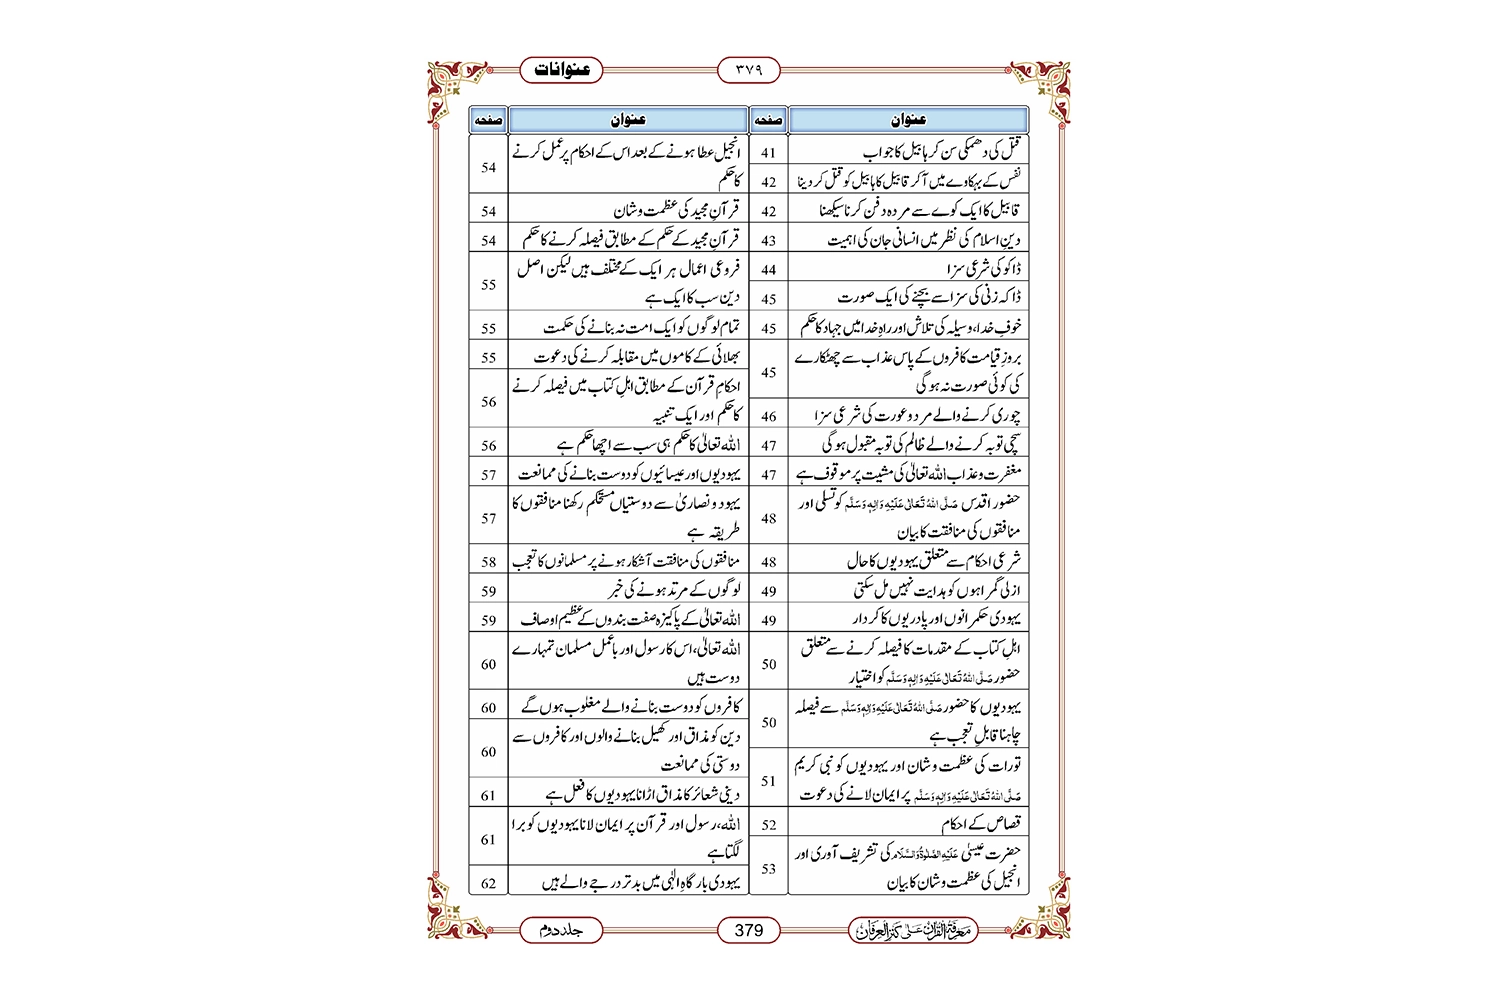 عنوانات
۳۷۹
عنوان صفحہ
قتل کی دھمکی سن کر ہابیل کا جواب 41
نفس کے بہکاوے میں آکر قابیل کا ہابیل کو قتل کر دینا 42
قابیل کا ایک کوے سے مردہ دفن کرنا سیکھنا 42
دینِ اسلام کی نظر میں انسانی جان کی اہمیت 43
ڈاکو کی شرعی سزا 44
ڈاکہ زنی کی سزا سے بچنے کی ایک صورت 45
خوفِ خدا، وسیلہ کی تلاش اور راہِ خدا میں جہاد کا حکم 45
بروزِ قیامت کافروں کے پاس عذاب سے چھٹکارے
کی کوئی صورت نہ ہوگی 45
چوری کرنے والے مرد و عورت کی شرعی سزا 46
سچی توبہ کرنے والے ظالم کی توبہ مقبول ہوگی 47
مغفرت و عذاب اللہ تعالیٰ کی مشیت پر موقوف ہے 47
حضور اقدس صَلَّی اللہُ تَعَالٰی عَلَیْہِ وَاٰلِہٖ وَسَلَّم کو تسلی اور
منافقوں کی منافقت کا بیان 48
شرعی احکام سے متعلق یہودیوں کا حال 48
ازلی گمراہوں کو ہدایت نہیں مل سکتی 49
یہودی حکمرانوں اور پادریوں کا کردار 49
اہلِ کتاب کے مقدمات کا فیصلہ کرنے سے متعلق
حضور صَلَّی اللہُ تَعَالٰی عَلَیْہِ وَاٰلِہٖ وَسَلَّم کو اختیار 50
یہودیوں کا حضور صَلَّی اللہُ تَعَالٰی عَلَیْہِ وَاٰلِہٖ وَسَلَّم سے فیصلہ
چاہنا قابلِ تعجب ہے 50
تورات کی عظمت و شان اور یہودیوں کو نبی کریم
صَلَّی اللہُ تَعَالٰی عَلَیْہِ وَاٰلِہٖ وَسَلَّم پر ایمان لانے کی دعوت 51
قصاص کے احکام 52
حضرت عیسیٰ عَلَیْہِ الصَّلٰوۃُ وَالسَّلَام کی تشریف آوری اور
انجیل کی عظمت و شان کا بیان 53
عنوان صفحہ
انجیل عطا ہونے کے بعد اس کے احکام پر عمل کرنے
کا حکم 54
قرآنِ مجید کی عظمت و شان 54
قرآنِ مجید کے حکم کے مطابق فیصلہ کرنے کا حکم 54
فروعی اعمال ہر ایک کے مختلف ہیں لیکن اصل
دین سب کا ایک ہے 55
تمام لوگوں کو ایک امت نہ بنانے کی حکمت 55
بھلائی کے کاموں میں مقابلہ کرنے کی دعوت 55
احکامِ قرآن کے مطابق اہلِ کتاب میں فیصلہ کرنے
کا حکم اور ایک تنبیہ 56
اللہ تعالیٰ کا حکم ہی سب سے اچھا حکم ہے 56
یہودیوں اور عیسائیوں کو دوست بنانے کی ممانعت 57
یہود و نصاریٰ سے دوستیاں مستحکم رکھنا منافقوں کا
طریقہ ہے 57
منافقوں کی منافقت آشکار ہونے پر مسلمانوں کا تعجب 58
لوگوں کے مرتد ہونے کی خبر 59
اللہ تعالیٰ کے پاکیزہ صفت بندوں کے عظیم اوصاف 59
اللہ تعالیٰ، اس کا رسول اور باعمل مسلمان تمہارے
دوست ہیں 60
کافروں کو دوست بنانے والے مغلوب ہوں گے 60
دین کو مذاق اور کھیل بنانے والوں اور کافروں سے
دوستی کی ممانعت 60
دینی شعائر کا مذاق اڑانا یہودیوں کا فعل ہے 61
اللہ، رسول اور قرآن پر ایمان لانا یہودیوں کو برا
لگتا ہے 61
یہودی بارگاہِ الٰہی میں بدتر درجے والے ہیں 62
مَعْرِفَةُ الْقُرْاٰن عَلٰی کَنْزِ الْعِرْفَان
379
جلد دوم